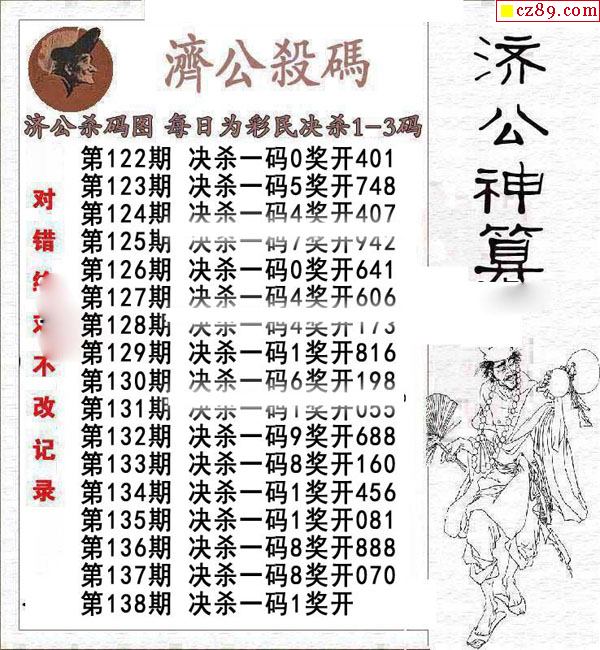 cz89.com
濟公殺碼
济公杀码图 每日为彩民决杀1-3码
第122期 决杀一码0奖开401
第123期 决杀一码5奖开748
第124期 决杀一码4奖开407
第125期 决杀一码7奖开942
第126期 决杀一码0奖开641
第127期 决杀一码4奖开606
第128期 决杀一码4奖开173
第129期 决杀一码1奖开816
第130期 决杀一码6奖开198
第131期 决杀一码1奖开055
第132期 决杀一码9奖开688
第133期 决杀一码8奖开160
第134期 决杀一码1奖开456
第135期 决杀一码1奖开081
第136期 决杀一码8奖开888
第137期 决杀一码8奖开070
第138期 决杀一码1奖开
对错 不改记录
济公神算